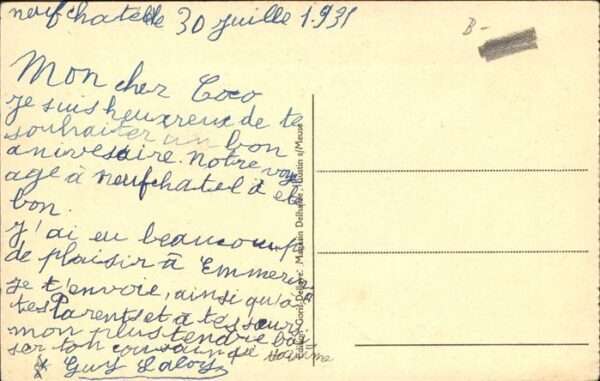 neufchatelle 30 juille 1.931
B-
Mon cher Coco
je suis heureux de te
souhaiter un bon
anivesaire. Notre voy
age à neufchatel à eté
bon.
J'ai eu beaucoup
de plaisir à Emmerin
je t'envoie, ainsi qu'à
tes Parents et à tes sœurs
mon plus tendre bai
ser ton cousin qui
Guy Laloy
Edition "Gons" Delhaye. Magasin Delhaye, Hastin s/Meuse